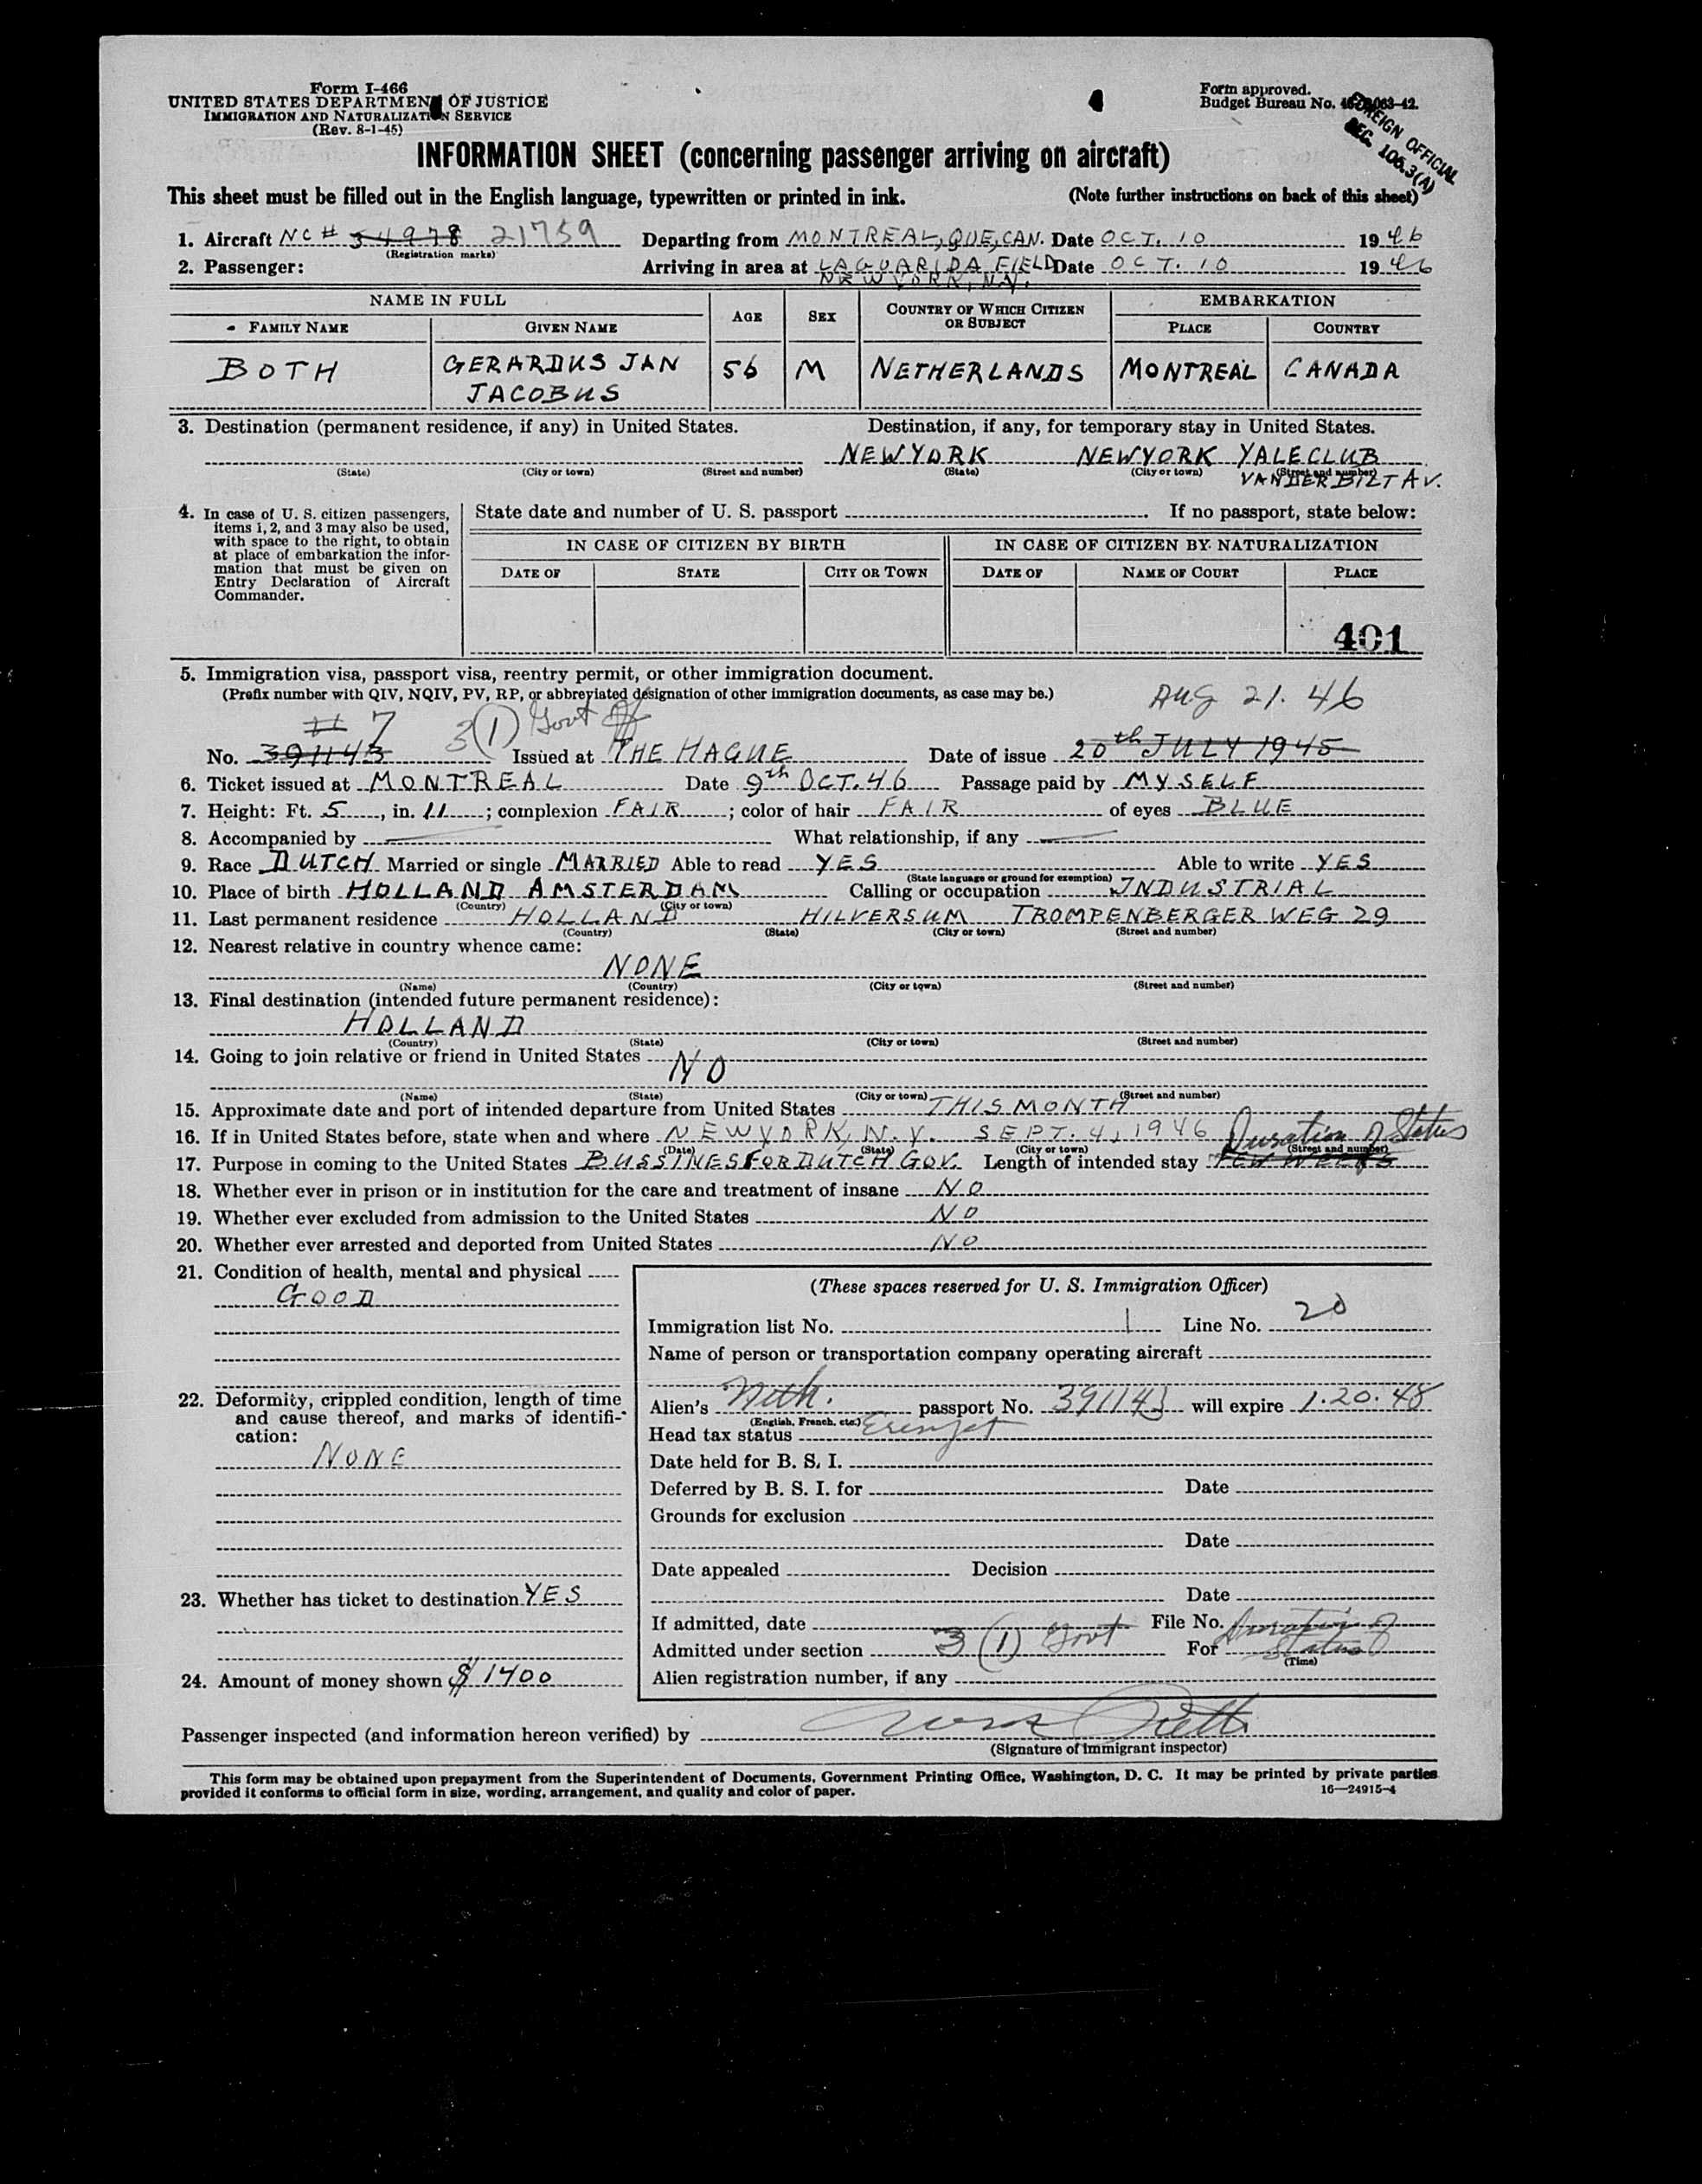 Form I-466
UNITED STATES DEPARTMENT OF JUSTICE
IMMIGRATION AND NATURALIZATION SERVICE
(Rev. 8-1-45)
Form approved.
Budget Bureau No.
FOREIGN OFFICIAL
SEC. 106.3(A)
INFORMATION SHEET (concerning passenger arriving on aircraft)
This sheet must be filled out in the English language, typewritten or printed in ink. (Note further instructions on back of this sheet)
1. Aircraft NC# 54978 21759 Departing from MONTREAL, QUE, CAN. Date OCT. 10 1946
(Registration marks)
2. Passenger: Arriving in area at LAGUARIDA FIELD Date OCT. 10 1946
NEW YORK, N.Y.
NAME IN FULL AGE SEX COUNTRY OF WHICH CITIZEN OR SUBJECT EMBARKATION
FAMILY NAME GIVEN NAME PLACE COUNTRY
BOTH GERARDUS JAN 56 M NETHERLANDS MONTREAL CANADA
JACOBUS
3. Destination (permanent residence, if any) in United States. Destination, if any, for temporary stay in United States.
NEWYORK NEWYORK YALECLUB
(State) (City or town) (Street and number) (State) (City or town) (Street and number)
VANDERBILT AV.
4. In case of U. S. citizen passengers, State date and number of U. S. passport If no passport, state below:
items 1, 2, and 3 may also be used,
with space to the right, to obtain
at place of embarkation the infor-
mation that must be given on
Entry Declaration of Aircraft
Commander.
IN CASE OF CITIZEN BY BIRTH IN CASE OF CITIZEN BY NATURALIZATION
DATE OF STATE CITY OR TOWN DATE OF NAME OF COURT PLACE
401
5. Immigration visa, passport visa, reentry permit, or other immigration document.
(Prefix number with QIV, NQIV, PV, RP, or abbreviated designation of other immigration documents, as case may be.)
# 7 3(1) Govt Off Aug 21. 46
No. 391143 Issued at THE HAGUE Date of issue 20th JULY 1945
6. Ticket issued at MONTREAL Date 9th OCT. 46 Passage paid by MYSELF
7. Height: Ft. 5, in. 11; complexion FAIR; color of hair FAIR of eyes BLUE
8. Accompanied by What relationship, if any
9. Race DUTCH Married or single MARRIED Able to read YES Able to write YES
(State language or ground for exemption)
10. Place of birth HOLLAND AMSTERDAM Calling or occupation INDUSTRIAL
(Country) (City or town)
11. Last permanent residence HOLLAND HILVERSUM TROMPENBERGER WEG 29
(Country) (State) (City or town) (Street and number)
12. Nearest relative in country whence came:
NONE
(Name) (Country) (City or town) (Street and number)
13. Final destination (intended future permanent residence):
HOLLAND
(Country) (State) (City or town) (Street and number)
14. Going to join relative or friend in United States NO
(Name) (State) (City or town) (Street and number)
15. Approximate date and port of intended departure from United States THIS MONTH
16. If in United States before, state when and where NEWYORK, N.Y. SEPT. 4, 1946 Duration of Status
(Date) (State) (City or town) (Street and number)
17. Purpose in coming to the United States BUSSINES FOR DUTCH GOV. Length of intended stay FEW WEEKS
18. Whether ever in prison or in institution for the care and treatment of insane NO
19. Whether ever excluded from admission to the United States NO
20. Whether ever arrested and deported from United States NO
21. Condition of health, mental and physical
GOOD
22. Deformity, crippled condition, length of time
and cause thereof, and marks of identifi-
cation:
NONE
23. Whether has ticket to destination YES
24. Amount of money shown $ 1400
(These spaces reserved for U. S. Immigration Officer)
Immigration list No. 1 Line No. 20
Name of person or transportation company operating aircraft
Alien's Neth. passport No. 391143 will expire 1.20.48
(English, French, etc.)
Head tax status Exempt
Date held for B. S. I.
Deferred by B. S. I. for Date
Grounds for exclusion
Date
Date appealed Decision
Date
If admitted, date File No.
Admitted under section 3 (1) Govt For Duration of Status
(Time)
Alien registration number, if any
Passenger inspected (and information hereon verified) by
(Signature of immigrant inspector)
This form may be obtained upon prepayment from the Superintendent of Documents, Government Printing Office, Washington, D. C. It may be printed by private parties
provided it conforms to official form in size, wording, arrangement, and quality and color of paper. 16—24915-4